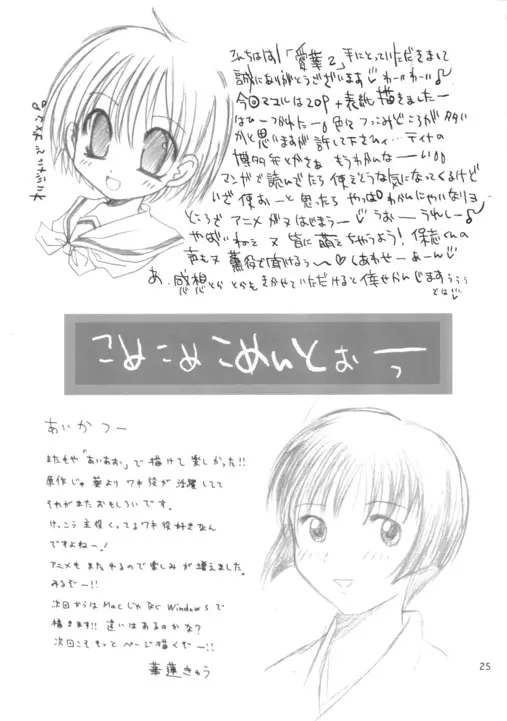 こんちはっ!「愛華2」手にとっていただきまして
誠にありがとうございます♡わーいわーい♪
今回マコルは20P+表紙描きましたー
はひーつかれたー色々つっこみどころが多い
かと思いますが許して下さい…ティナの
博多弁とかさぁ もうわかんなーい
マンガで読んでたら使えそうな気になってくるけど
いざ使おーと思ったらやっぱわかんにゃいなりヨ
ところでアニメがはじまるー♡うおーうれしー♪
やばいねぇ 又 皆に萌えちゃうよう!保志くんの
声も又 薫役で聞けるぅ〜♡しあわせーあーん♡
あ、感想とかとかもきかせていただけると倖せかんじますぅぅぅ
とは
こめこめこめんとぉーっ
あいかつー
またもや「あいあお」で描けて楽しかった!!
原作じゃ葵よりワキ役が活躍してて
それがまたおもしろいです。
けっこう主役くってるワキ役好きなん
ですよねー!
アニメもまたやるので楽しみが増えました。
みるぞー!!
次回からはMacじゃなくWindowsで
描きます!!違いはあるのかな?
次回こそもっとページ描くぞー!!
華蓮きゅう
25